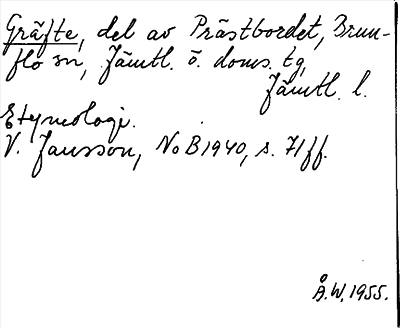 Gräfte, del av Prästbordet, Brun-
flo sn, Jämtl. ö. doms. tg,
Jämtl. l.
Etymologi.
V. Jansson, NoB 1940, s. 71 ff.
Å.W. 1955.